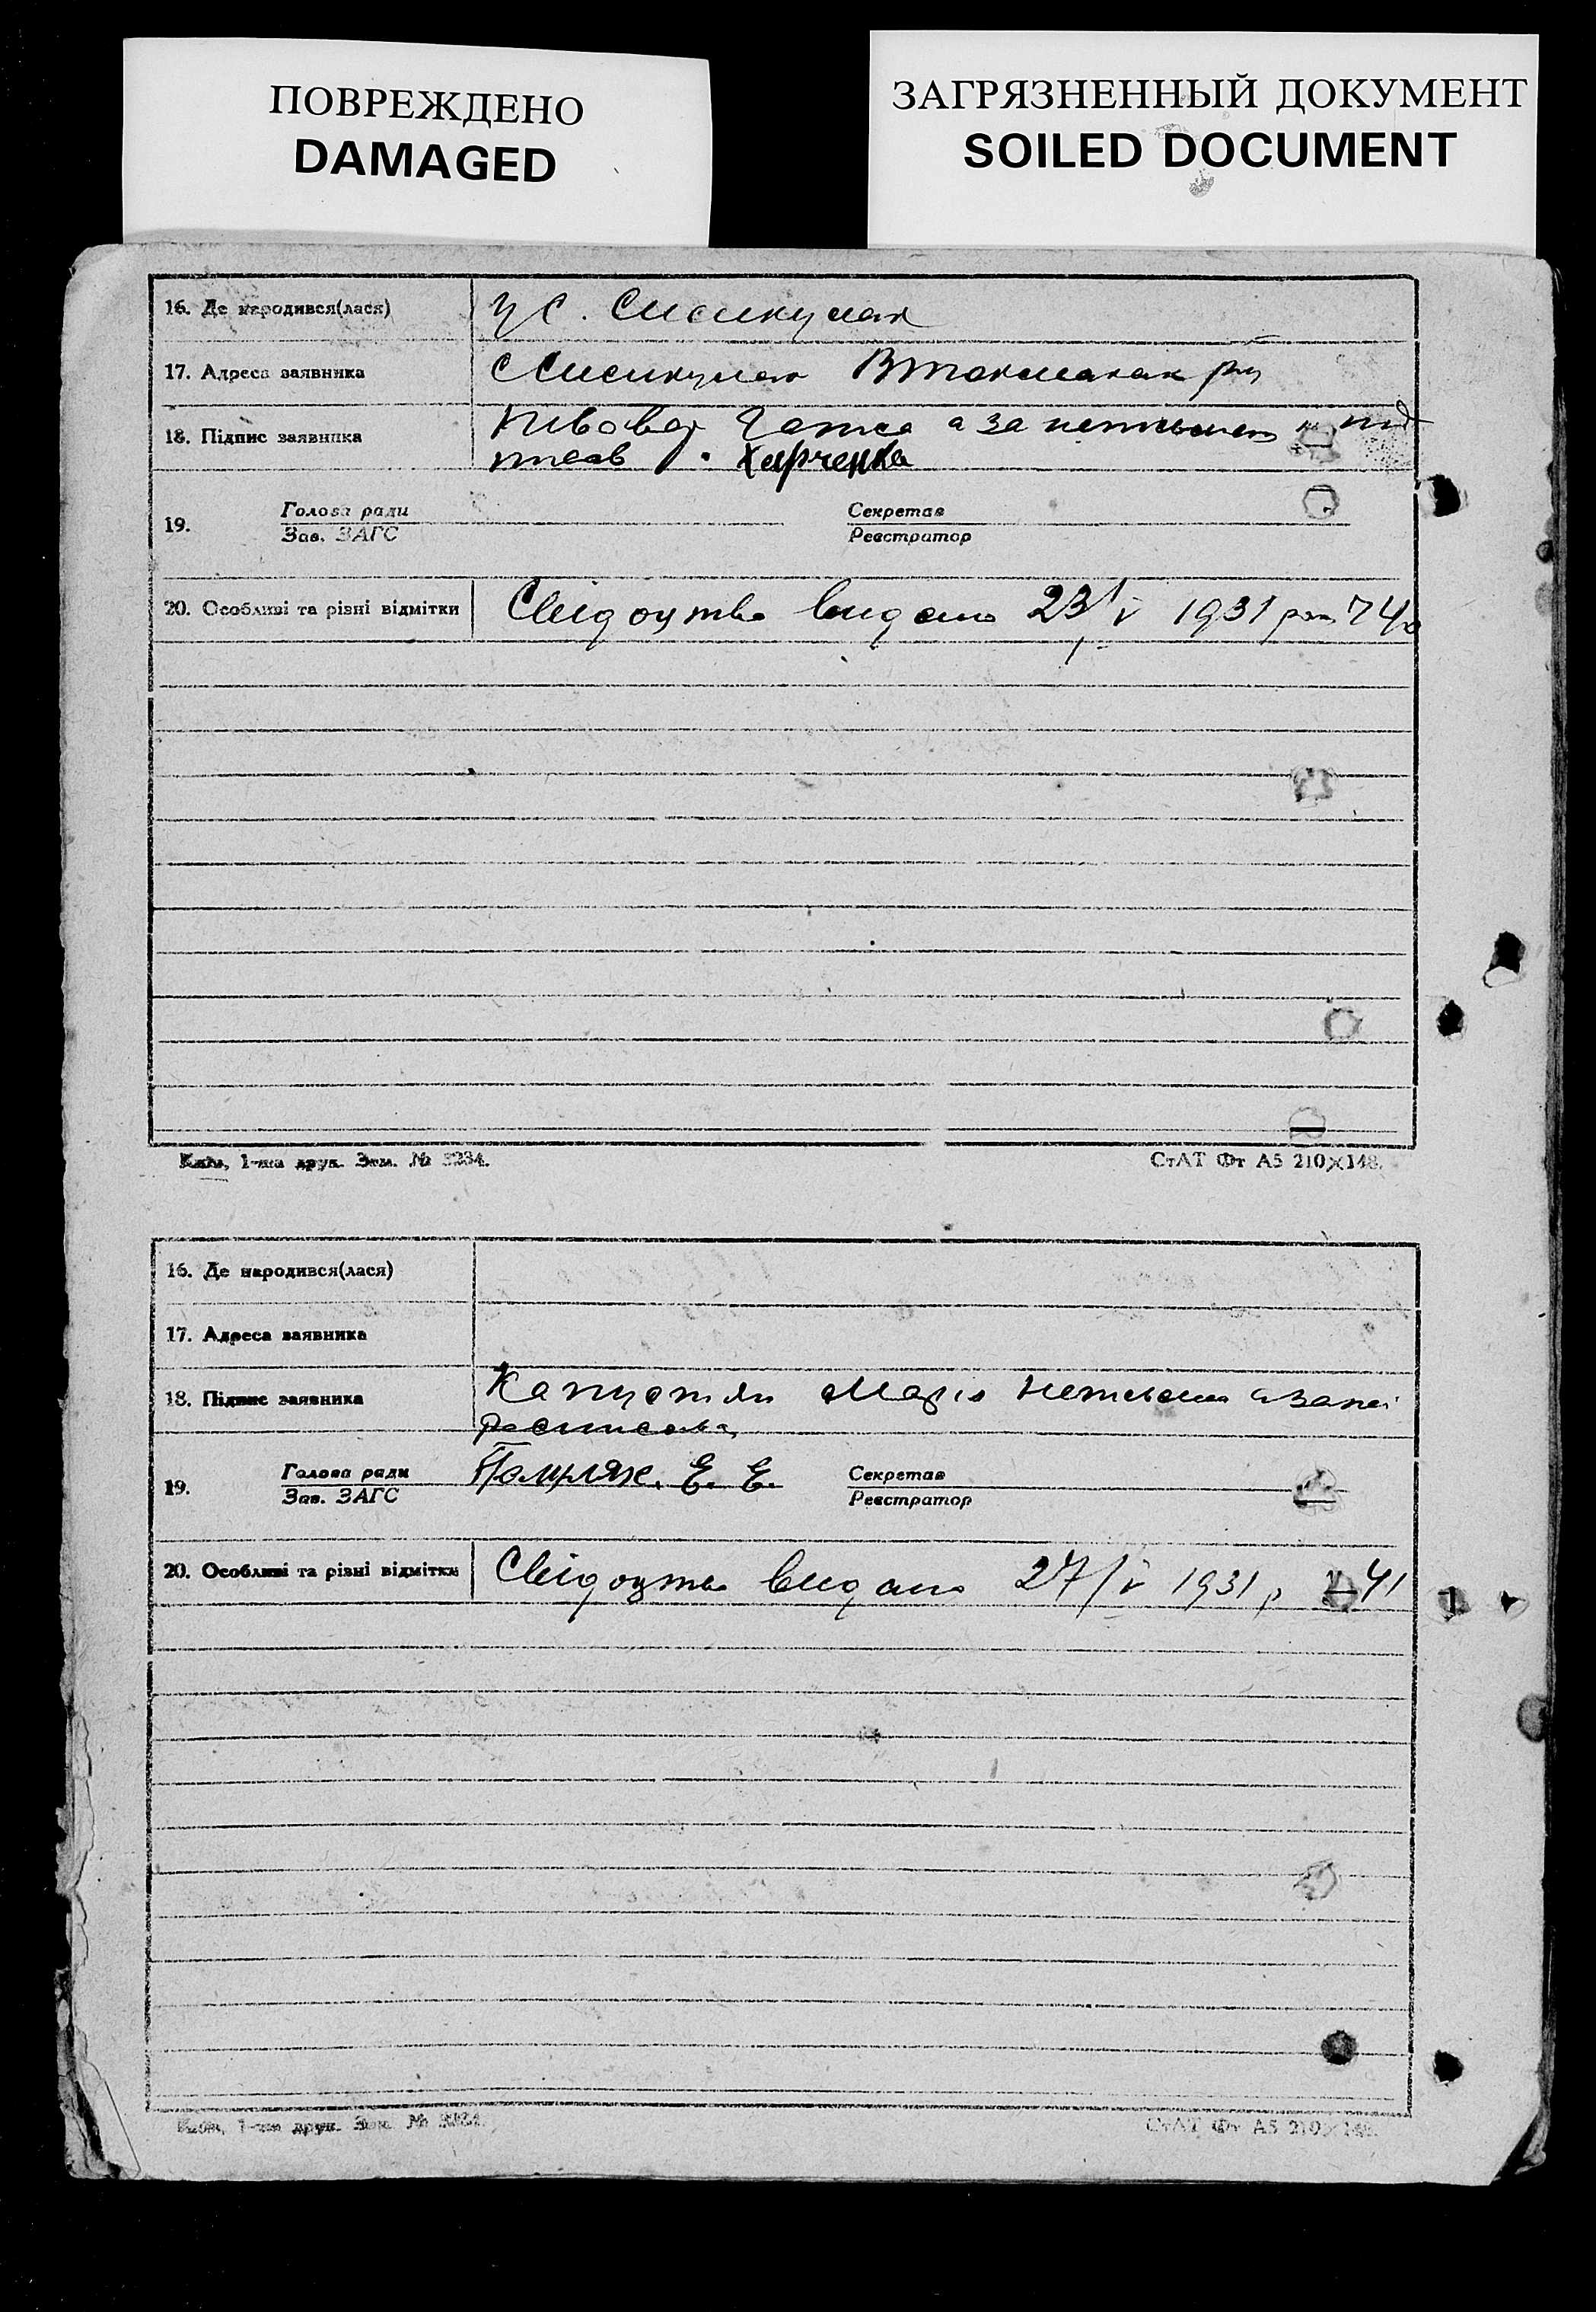 ПОВРЕЖДЕНО
DAMAGED
ЗАГРЯЗНЕННЫЙ ДОКУМЕНТ
SOILED DOCUMENT
16. Де народився(лася)
у с.
17. Адреса заявника
18. Підпис заявника
Пивовар а за
Харченко
19. Голова ради
Зав. ЗАГС
Секретар
Реєстратор
20. Особливі та різні відмітки
Свідоцтво видано 23/V 1931 рок 740
Київ, 1-ша друк. Зам. № 3234.
СтАТ Фт А5 210×148.
16. Де народився(лася)
17. Адреса заявника
18. Підпис заявника
Капустян Марія неписьмена а за неї
росписалась
19. Голова ради
Зав. ЗАГС
Е. Е.
Секретар
Реєстратор
20. Особливі та різні відмітки
Свідоцтво видано 27/V 1931 р 41
Київ, 1-ша друк. Зам. № 3234.
СтАТ Фт А5 210×148.